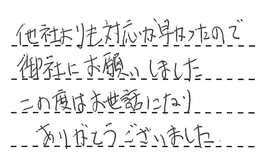 他社よりも対応が早かったので
御社にお願いしました
この度はお世話になり
ありがとうございました